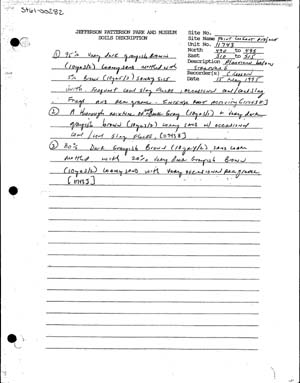 ST61-00282
JEFFERSON PATTERSON PARK AND MUSEUM
SOILS DESCRIPTION
Site No.
Site Name Point Lookout Project
Unit No. 1174B
North 490 - 495
East 310 - 315
Description
Recorder(s)
Date 15 May 1995
① 95% Very dark grayish Brown
(10yr3/2) loamy sand mottled with
5% Brown (10yr5/3) sandy silt
with frequent coal slag flecks, occasional coal/coal slag
Frags and pea gravel.
② A thorough mixture of Dark Gray (10yr4/1) + Very dark
grayish brown (10yr3/2) loamy sand w/ occasional
coal / coal slag flecks
③ 80% Dark Grayish Brown (10yr4/2) sandy loam
mottled with 20% Very Dark Grayish Brown
(10yr3/2) loamy sand with very occasional pea gravel